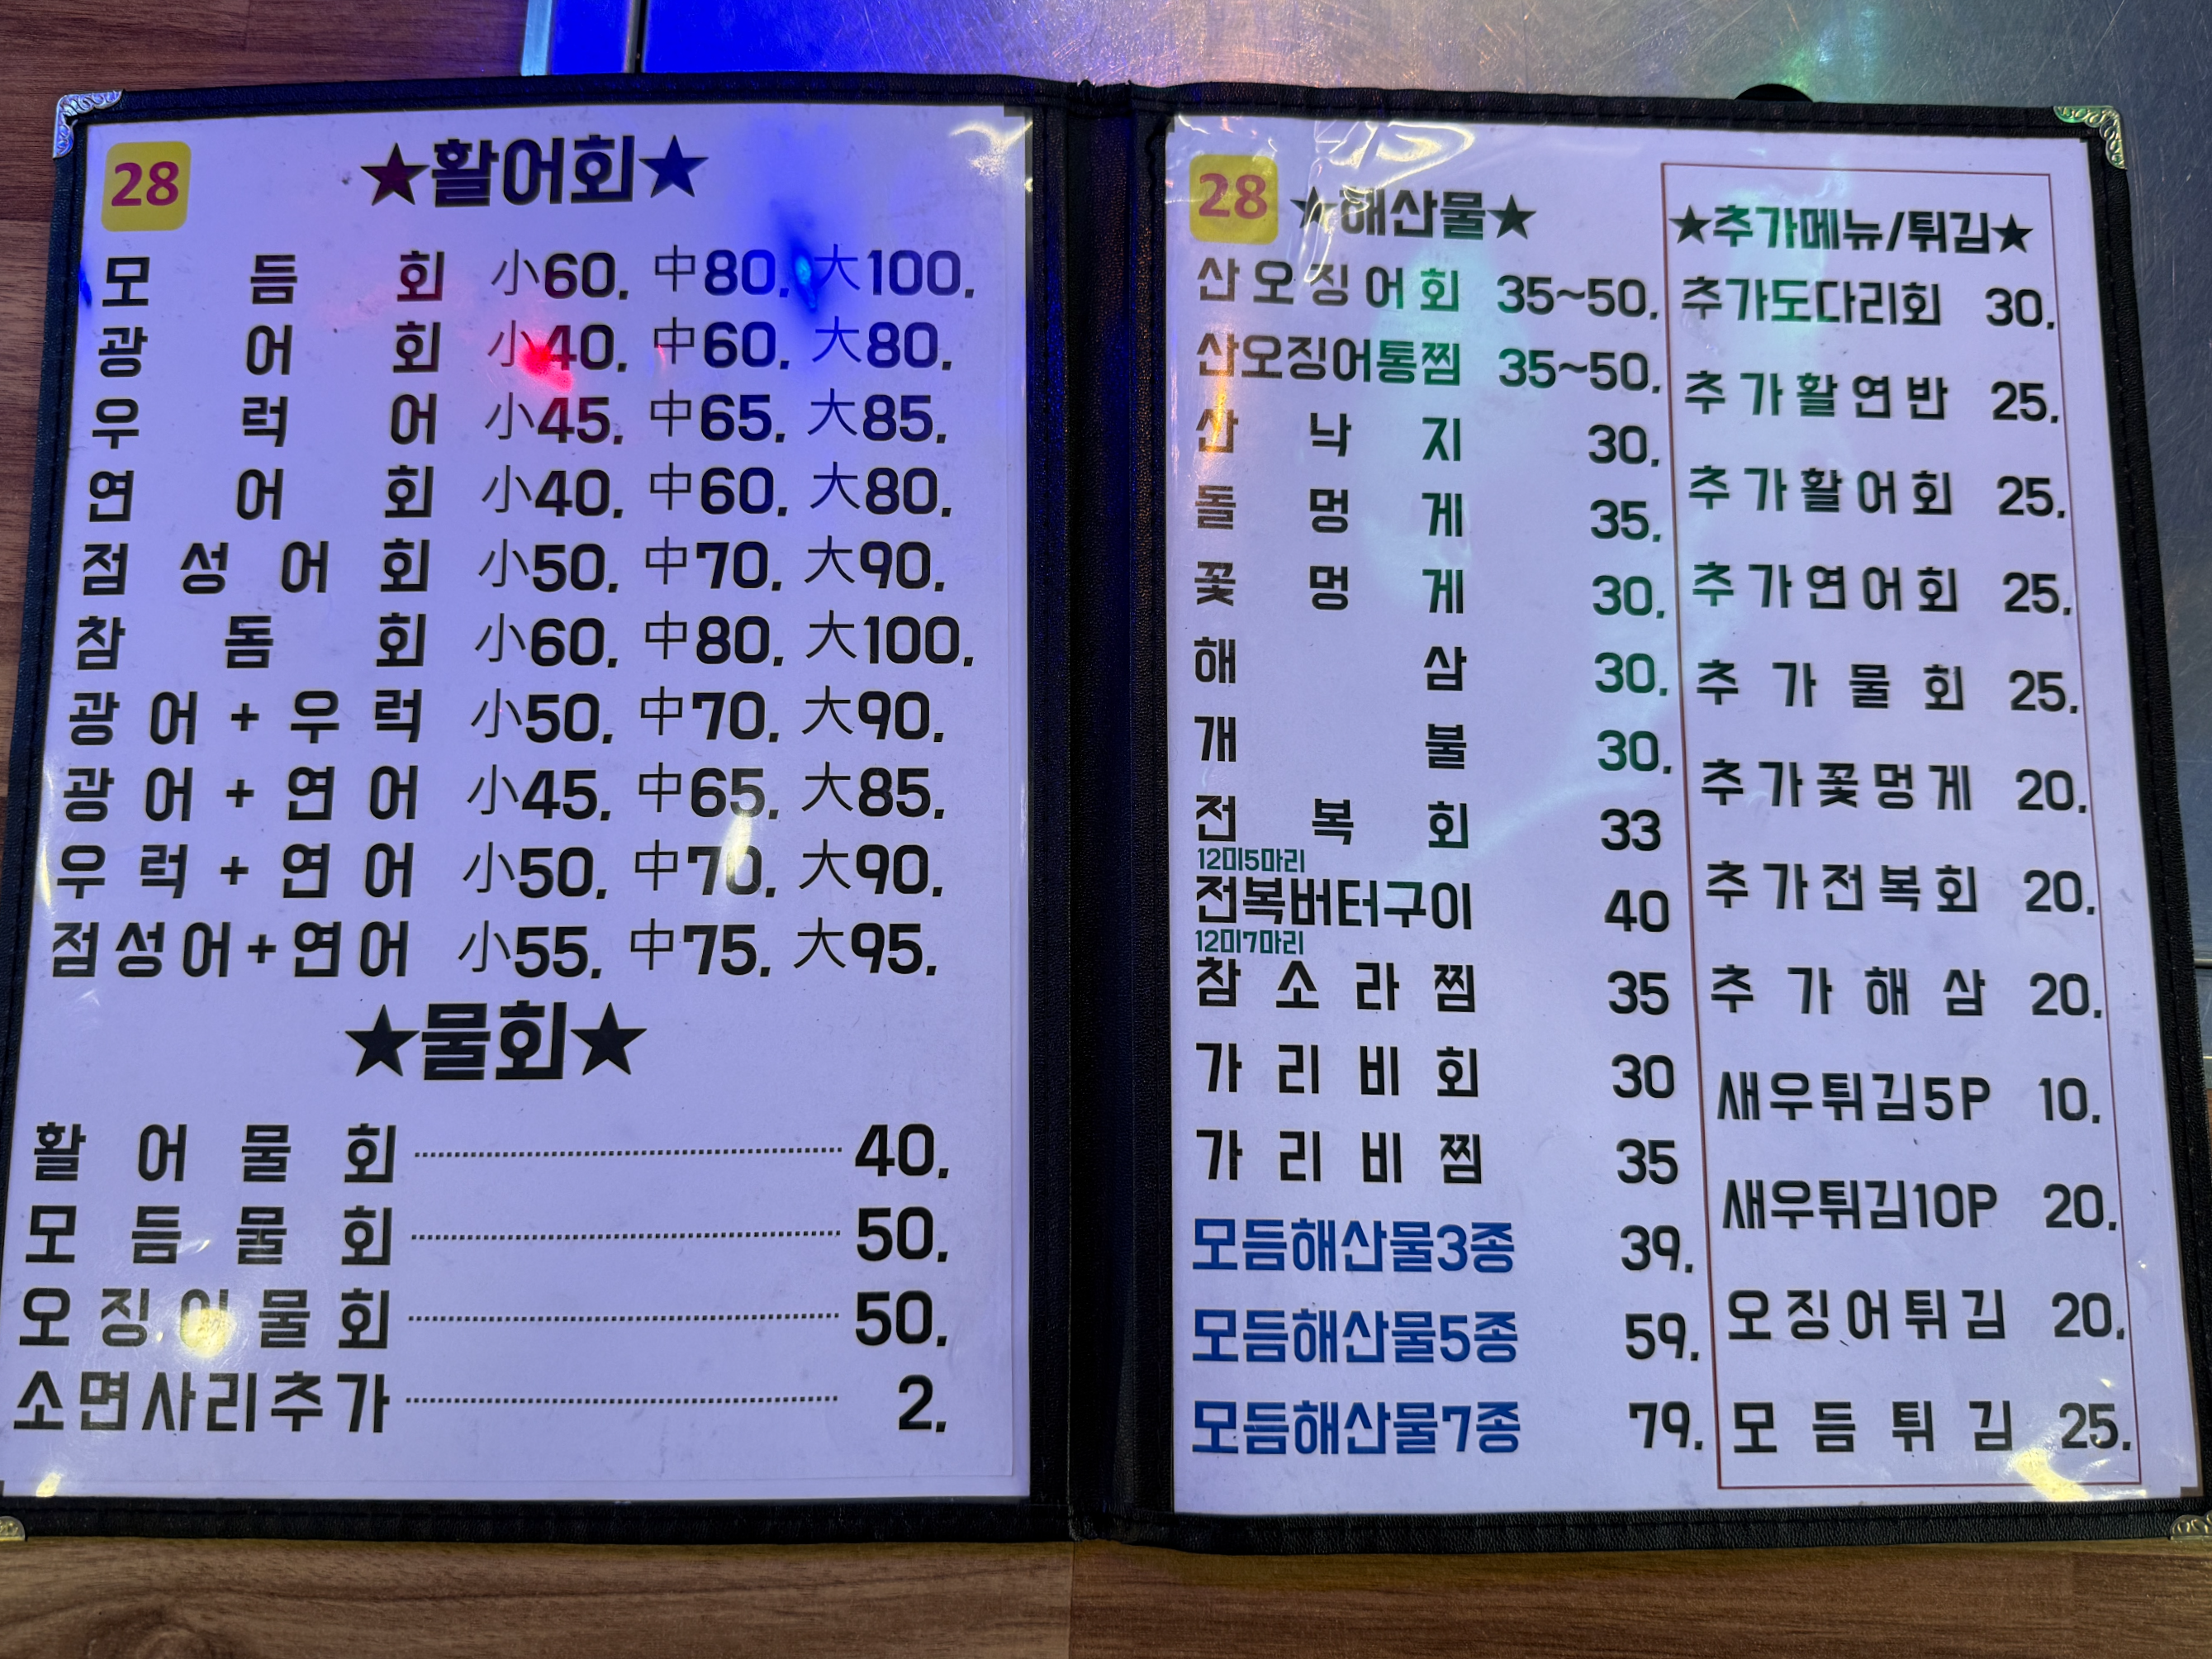 28
★활어회★
모듬회 小60, 中80, 大100,
광어회 小40, 中60, 大80,
우럭어 小45, 中65, 大85,
연어회 小40, 中60, 大80,
점성어회 小50, 中70, 大90,
참돔회 小60, 中80, 大100,
광어+우럭 小50, 中70, 大90,
광어+연어 小45, 中65, 大85,
우럭+연어 小50, 中70, 大90,
점성어+연어 小55, 中75, 大95,
★물회★
활어물회 40,
모듬물회 50,
오징어물회 50,
소면사리추가 2,
28 ★해산물★
산오징어회 35~50,
산오징어통찜 35~50,
산낙지 30,
돌멍게 35,
꽃멍게 30,
해삼 30,
개불 30,
전복회 33
12미5마리
전복버터구이 40
12미7마리
참소라찜 35
가리비회 30
가리비찜 35
모듬해산물3종 39,
모듬해산물5종 59,
모듬해산물7종 79,
★추가메뉴/튀김★
추가도다리회 30,
추가활연반 25,
추가활어회 25,
추가연어회 25,
추가물회 25,
추가꽃멍게 20,
추가전복회 20,
추가해삼 20,
새우튀김5P 10,
새우튀김10P 20,
오징어튀김 20,
모듬튀김 25,